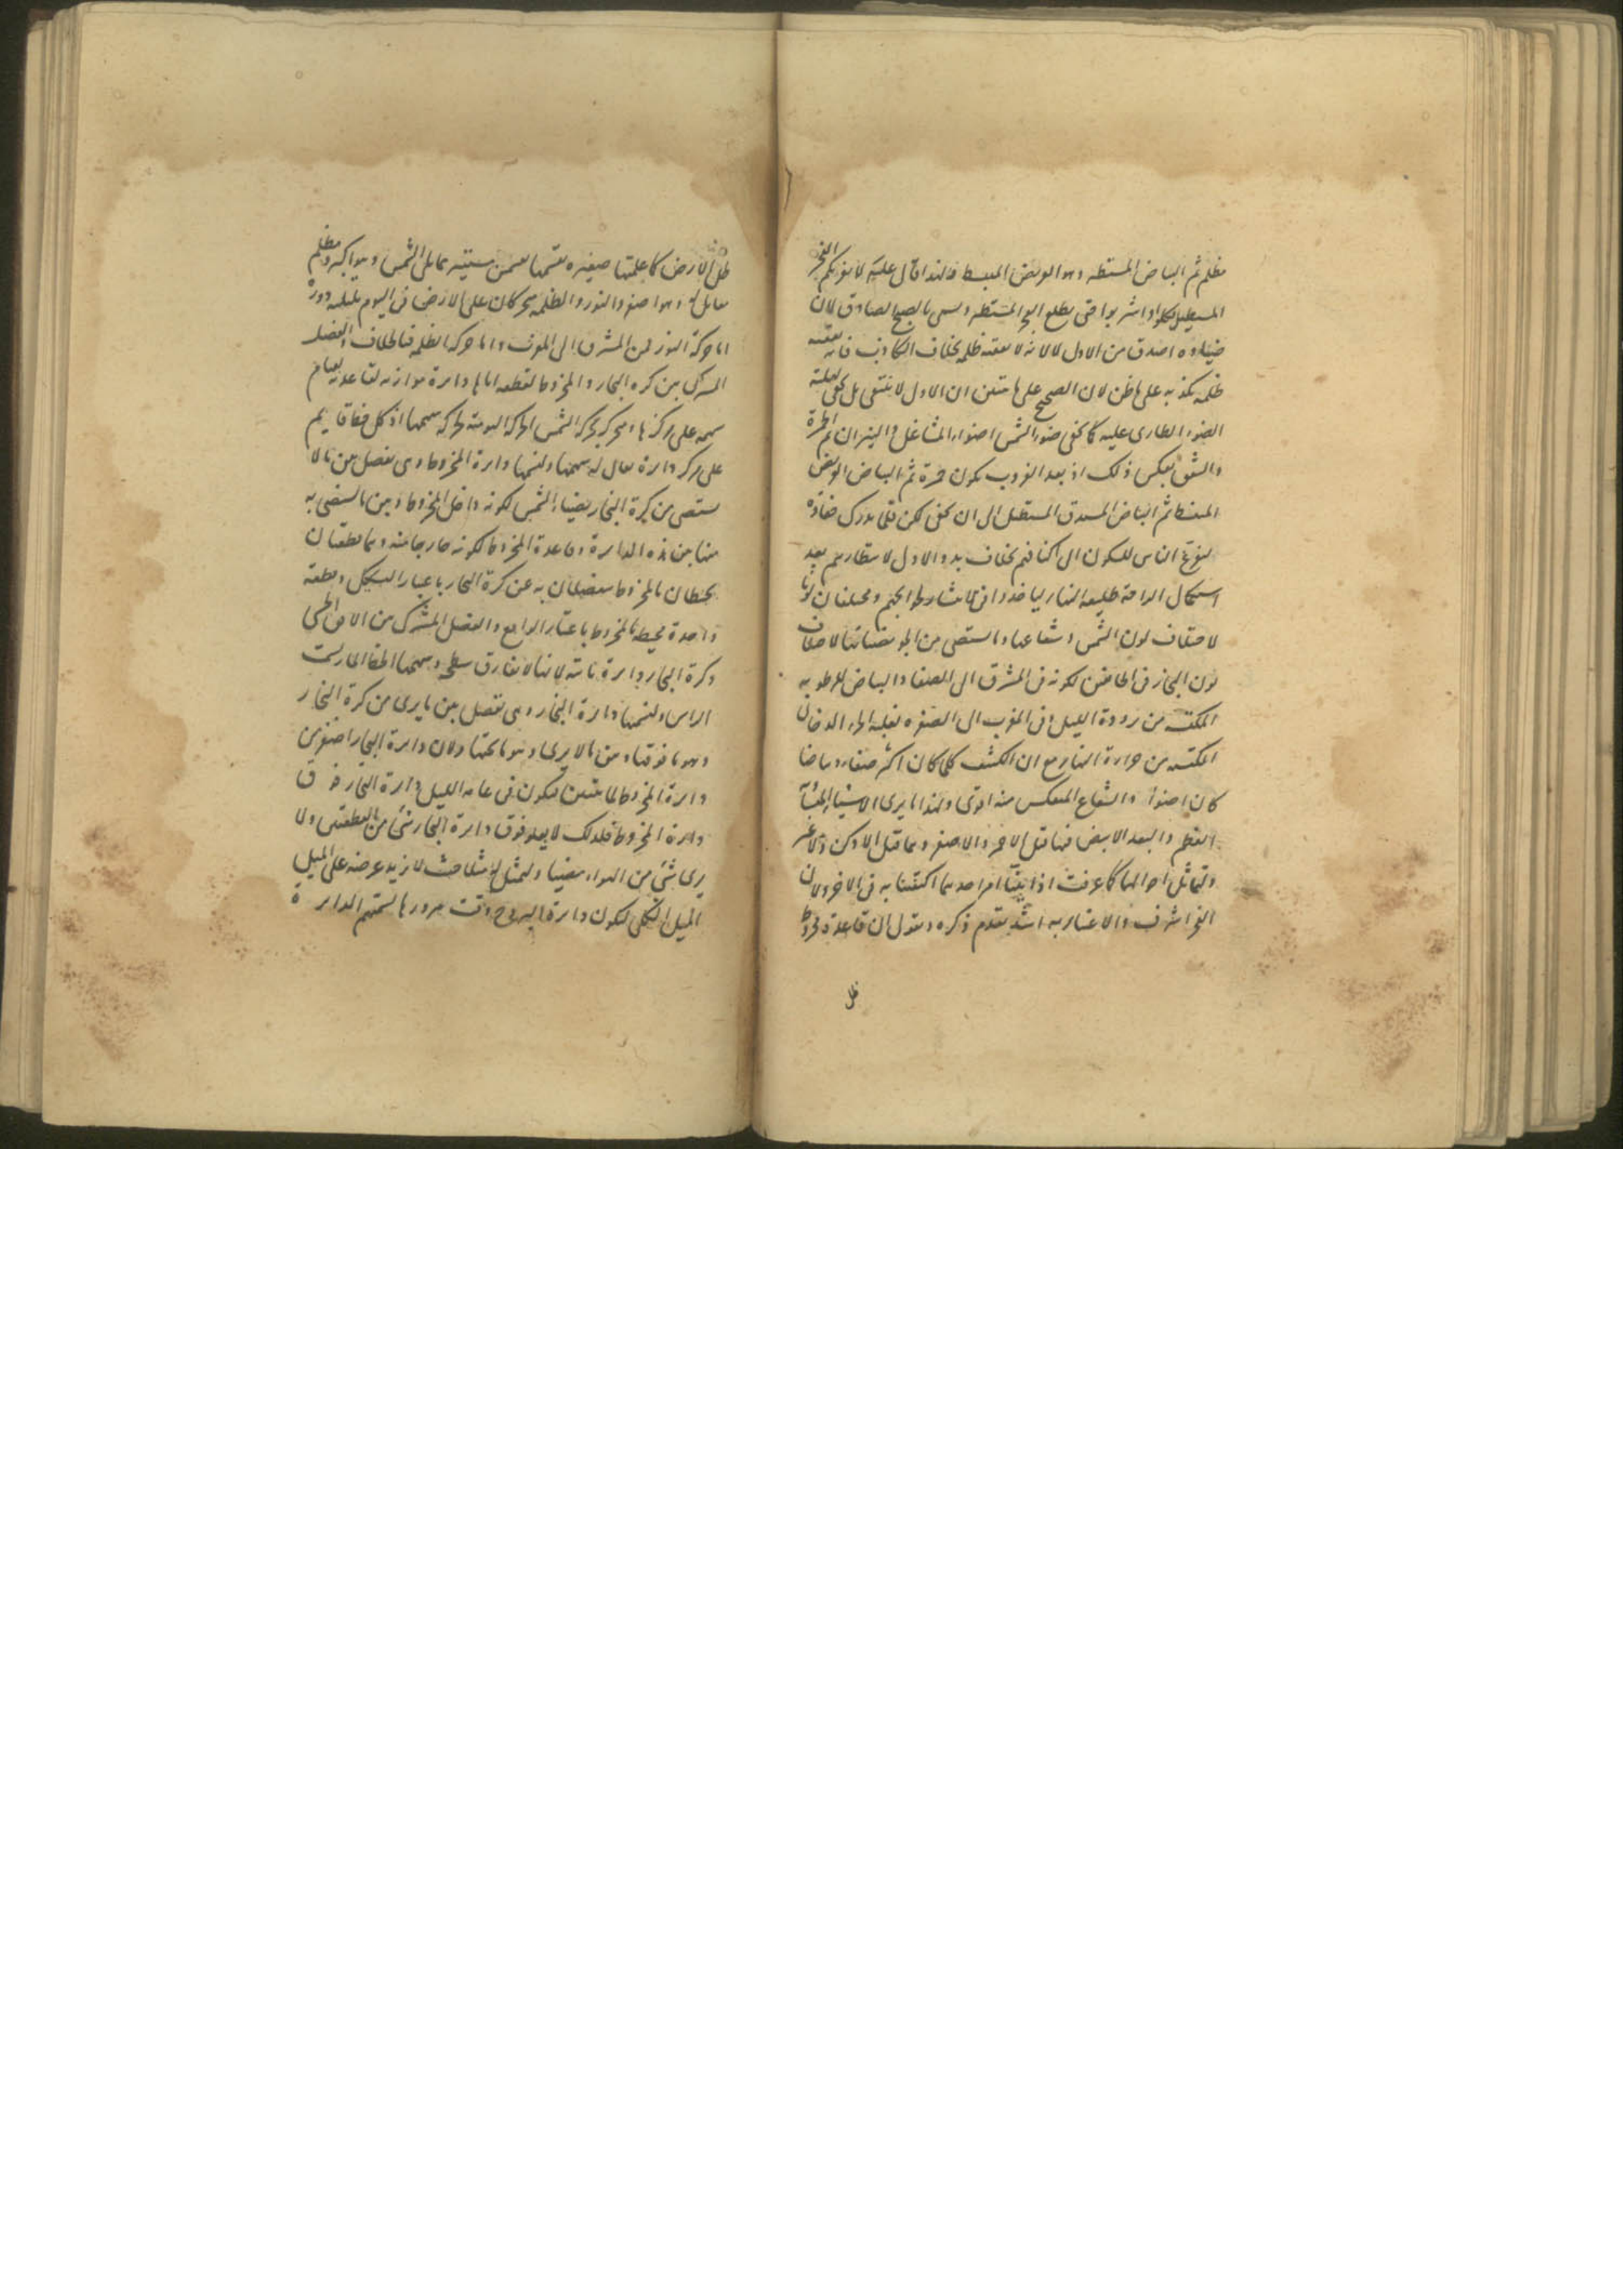 مظلم ثم البياض المستطير وهو العريض المنبسط ولهذا قال عليه لا يغرنكم الفجر
المستطيل فكلوا واشربوا حتى يطلع الفجر المستطير ويسمى بالصبح الصادق لان
ضياءه اصدق من الاول لا لانه لا يعقبه ظلمة بخلاف الكاذب فانه يعقبه
ظلمة يكذبه على ما ظن لان الصحيح على ما ان الاول لا ينتفى بل يخفى لغلبة
الضوء الطارى عليه كما يخفى ضوء الشمس اضواء المشاعل والنيران ثم الحمرة
والشفق بعكس ذلك اذ بعد الغروب يكون حمرة ثم البياض العريض
المنبسط ثم البياض المستدق المستطيل الى ان يخفى لكن قلما يدرك خفاؤه
الناس للسكون الى اكنافهم بخلاف بدو الاول لانتظارهم بعد
استكمال الراحة طليعة النهار لياخذوا فى والحجم ومختلفان لونا
لاختلاف لون الشمس وشعاعها والمستضى من الجو لاختلاف
لون البخار فى الخافقين لكونه فى المشرق الى الصفاء والبياض للرطوبة
المكتسبة من برودة الليل وفى المغرب الى الصفرة لغلبة الجزء الدخانى
المكتسبة من حرارة النهار مع ان الكثيف كلما كان اكثر صفاء وبياضا
كان اضوأ والشعاع المنعكس منه اقوى ولهذا ما يرى الاشياء
العظم والبعد الابيض منها قبل الاحمر والاصفر وهما قبل الادكن والاغبر
ولتماثل احوالهما كما عرفت اذا بينا امر احدهما اكتفينا به فى الاخر ولان
الفجر اشرف والاعتبار به اشد نقدم ذكره ونقول ان قاعدة مخروط
ظل
ظل الارض كما علمتها صغيرة تقسمها بقسمين مستنير مما يلى الشمس وهو اكبر ومظلم
يقابله وهو اصغر والنور والظلمة يتحركان على الارض فى اليوم بليلته دورة
اما حركة النور فمن المشرق الى المغرب واما حركة الظلمة فبالخلاف والفصل
المشترك بين كرة البخار والمخروط لقطعه اياها دائرة موازية لقاعدته لقيام
سهمه على مركزها متحركة بحركة الشمس الحركة اليومية لحركة سهمها اذ كل خط قايم
على مركز دائرة يقال له سهمها ولنسمها دائرة المخروط وهى تفصل بين ما لا
يستضى من كرة البخار بضياء الشمس لكونه داخل المخروط وبين ما يستضى به
منها بين هذه الدائرة وقاعدة المخروط لكونه خارجا منه وهما قطعتان
تحيطان بالمخروط منفصلان به عن كرة البخار باعتبار التشكل وقطعة
واحدة محيطة بالمخروط باعتبار الواقع والفصل المشترك من الافق الحسى
وكرة البخار دائرة ثابتة لانها لا تفارق سطحه وسهمها الخط المار بسمت
الراس ولنسمها دائرة البخار وهى تفصل بين ما يرى من كرة البخار
وهو ما فوقها وبين ما لا يرى وهو ما تحتها ولان دائرة البخار اصغر من
دائرة المخروط فيكون فى عامة الليل دائرة البخار فوق
دائرة المخروط فلذلك لا يعلو فوق دائرة البخار شئ من القطعتين ولا
يرى شئ من الهواء مضيئا ولنمثل لذلك مثلا حيث لا يزيد عرضه على الميل
الميل الكلى ليكون دائرة البروج وقت مرورها بسمتهم الدائرة